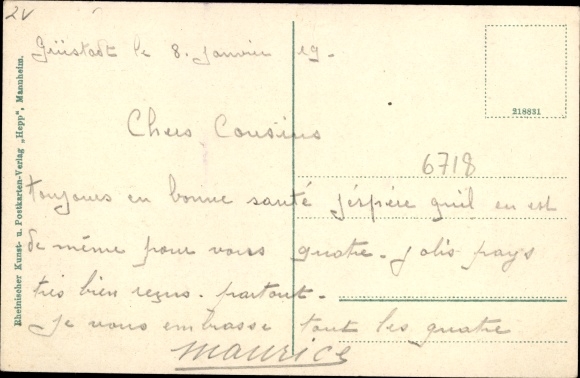 2V
Grüstadt le 8. janvier 19.
218831
Chers Cousins
6718
toujours en bonne santé j'éspère qu'il en est
de même pour vous quatre. jolis pays
très bien reçus. partout.
je vous embrasse tout les quatre
Maurice
Rheinischer Kunst- u. Postkarten-Verlag „Hepp", Mannheim.